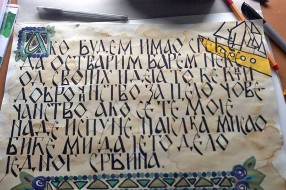 Ако будем имао ср
остварим барем неки
од својих идеја то ће бити
доброчинство за цело чове
чанство ако се те моје
наде испуне најслађа мисао
биће ми да је то дело
једног Србина